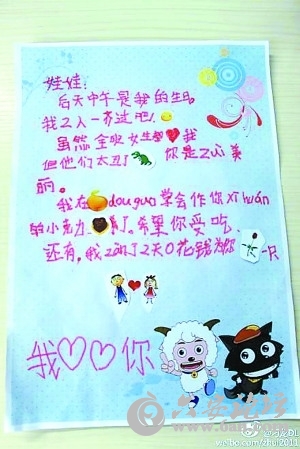 娃娃:
后天中午是我的生日,
我2人一齐过吧!
虽然全班女生都❤我
但他们太丑了 你是Z心美
丽。
我在douguo学会作你xǐhuán
的小点力 了。希望你爱吃.
还有,我Z 了2天0花钱为你 一只
我♡♡你
六安论坛
weibo.com/zhui2011